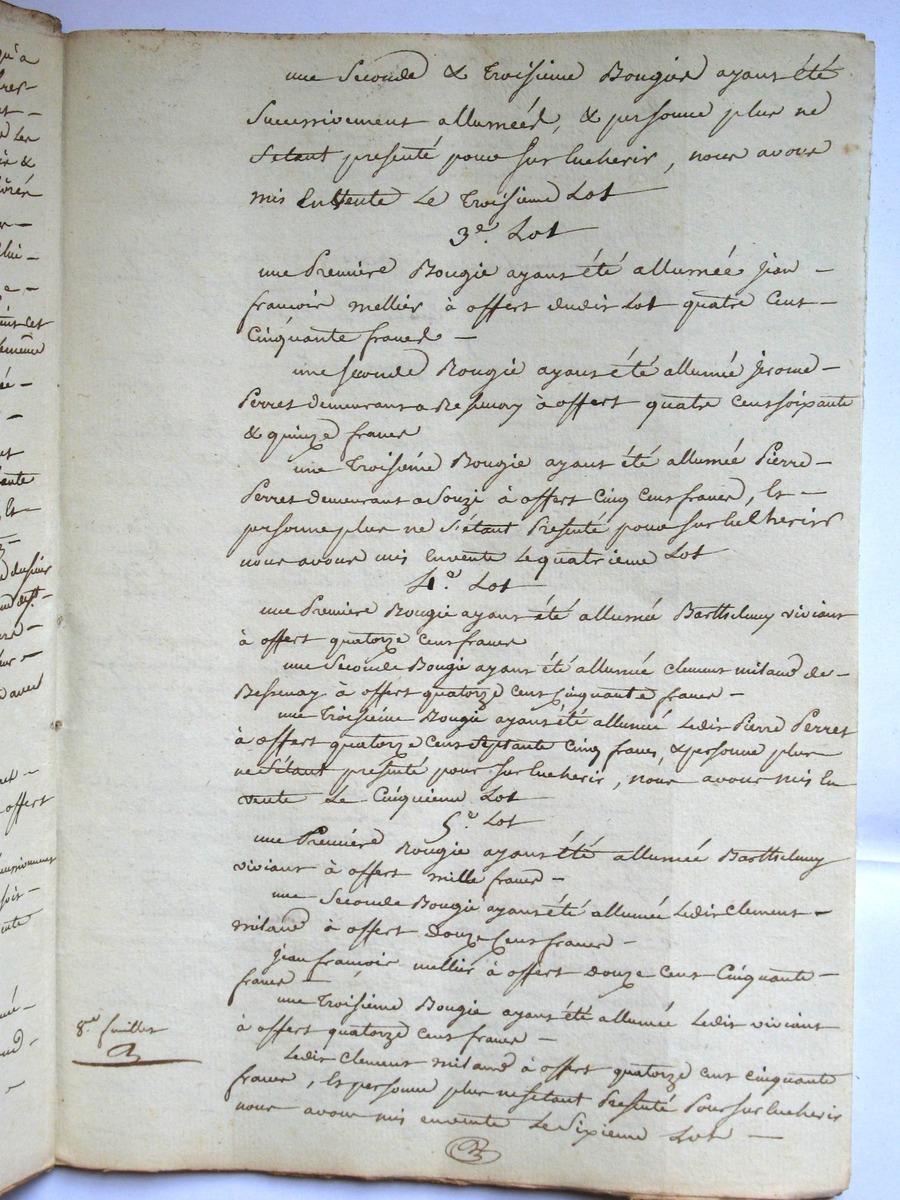 une Seconde & Troisieme Bougies ayant été
Successivement allumées, & personne plus ne
S'etant presenté pour surencherir, nous avons
mis en Vente Le Troisieme Lot
3e. Lot
une Premiere Bougie ayant été allumée jean
francois mellier à offert dudit Lot quatre Cent
Cinquante francs
une seconde Bougie ayant été allumée jerome
Perret demeurant a Bessenay à offert quatre cent soixante
& quinze francs
une Troisieme Bougie ayant été allumée Pierre
Perret demeurant a Souzi à offert Cinq Cent francs, Et
personne plus ne S'étant Presenté pour surencherir
nous avons mis en vente Le quatrieme Lot
4e. Lot
une Premiere Bougie ayant été allumée Barthelemy viviant
à offert quatorze Cent francs
une Seconde Bougie ayant été allumée clement miland de
Bessenay à offert quatorze Cent Cinquante francs
une Troisieme Bougie ayant été allumée Ledit Pierre Perret
à offert quatorze Cent Septante Cinq francs, & personne plus
ne S'étant presenté pour surencherir, nous avons mis En
vente Le Cinquieme Lot
5e. Lot
une Premiere Bougie ayant été allumée Barthelemy
viviant à offert mille francs
une Seconde Bougie ayant été allumée Ledit Clement
miland à offert Douze Cent francs
jean francois mellier à offert Douze Cent Cinquante
francs
une Troisieme Bougie ayant été allumée Ledit viviant
à offert quatorze Cent francs
Ledit Clement miland à offert quatorze cent cinquante
francs, Et personne plus ne s'etant Presenté Pour surencherir
nous avons mis en vente Le Sixieme Lot
8me. feuillet